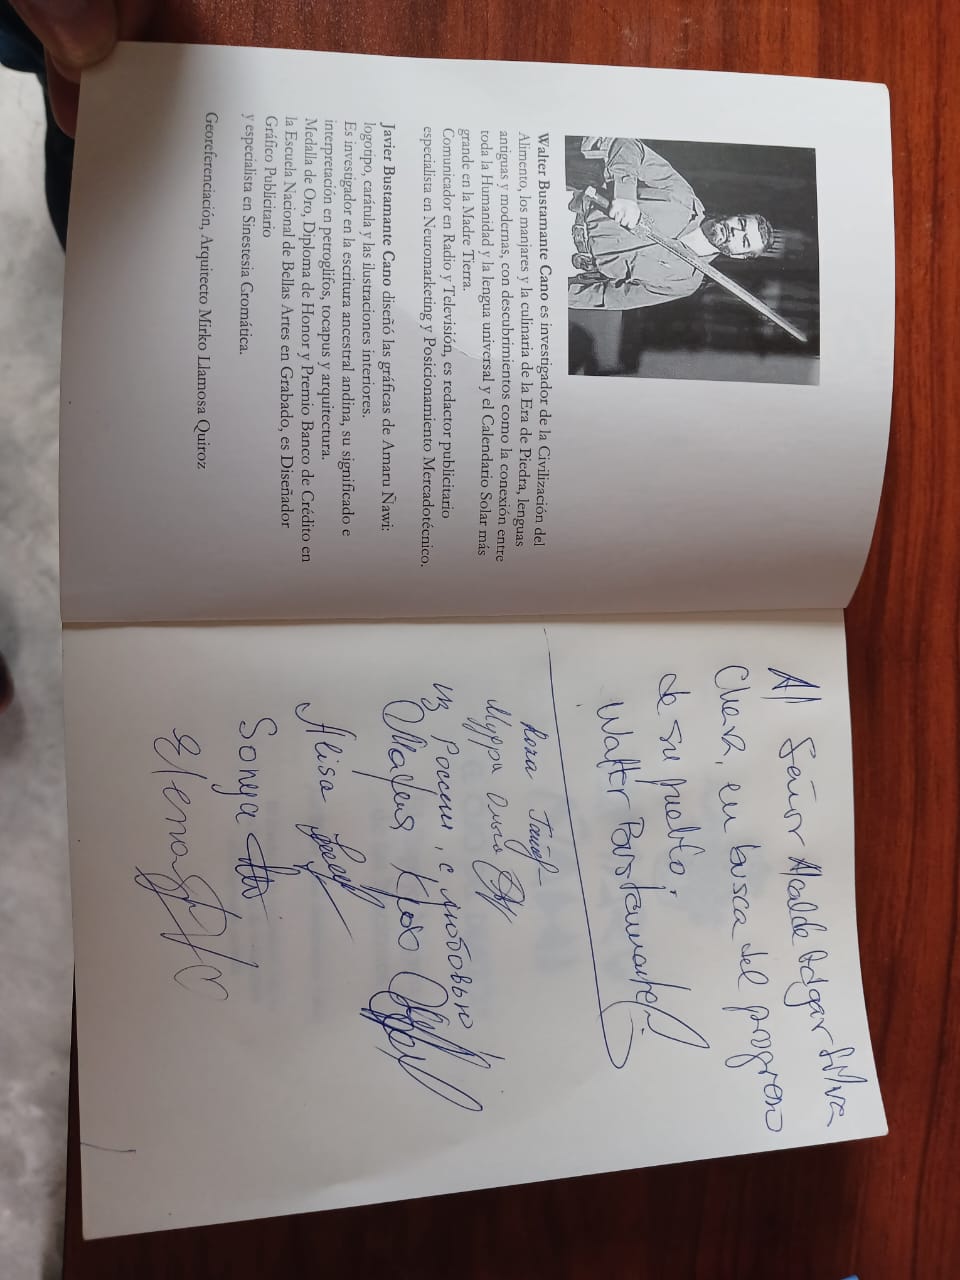 Walter Bustamante Cano es investigador de la Civilización del
Alimento, los manjares y la culinaria de la Era de Piedra, lenguas
antiguas y modernas, con descubrimientos como la conexión entre
toda la Humanidad y la lengua universal y el Calendario Solar más
grande en la Madre Tierra.
Comunicador en Radio y Televisión, es redactor publicitario
especialista en Neuromarketing y Posicionamiento Mercadotécnico.
Javier Bustamante Cano diseñó las gráficas de Amaru Ñawi:
logotipo, carátula y las ilustraciones interiores.
Es investigador en la escritura ancestral andina, su significado e
interpretación en petroglifos, tocapus y arquitectura.
Medalla de Oro, Diploma de Honor y Premio Banco de Crédito en
la Escuela Nacional de Bellas Artes en Grabado, es Diseñador
Gráfico Publicitario
y especialista en Sinestesia Cromática.
Georeferenciación, Arquitecto Mirko Llamosa Quiroz
Al Señor Alcalde Edgar Silva
en busca del progreso
de su pueblo.
Walter Bustamante
из России, с любовью!
Alisa
Sonya
Elena